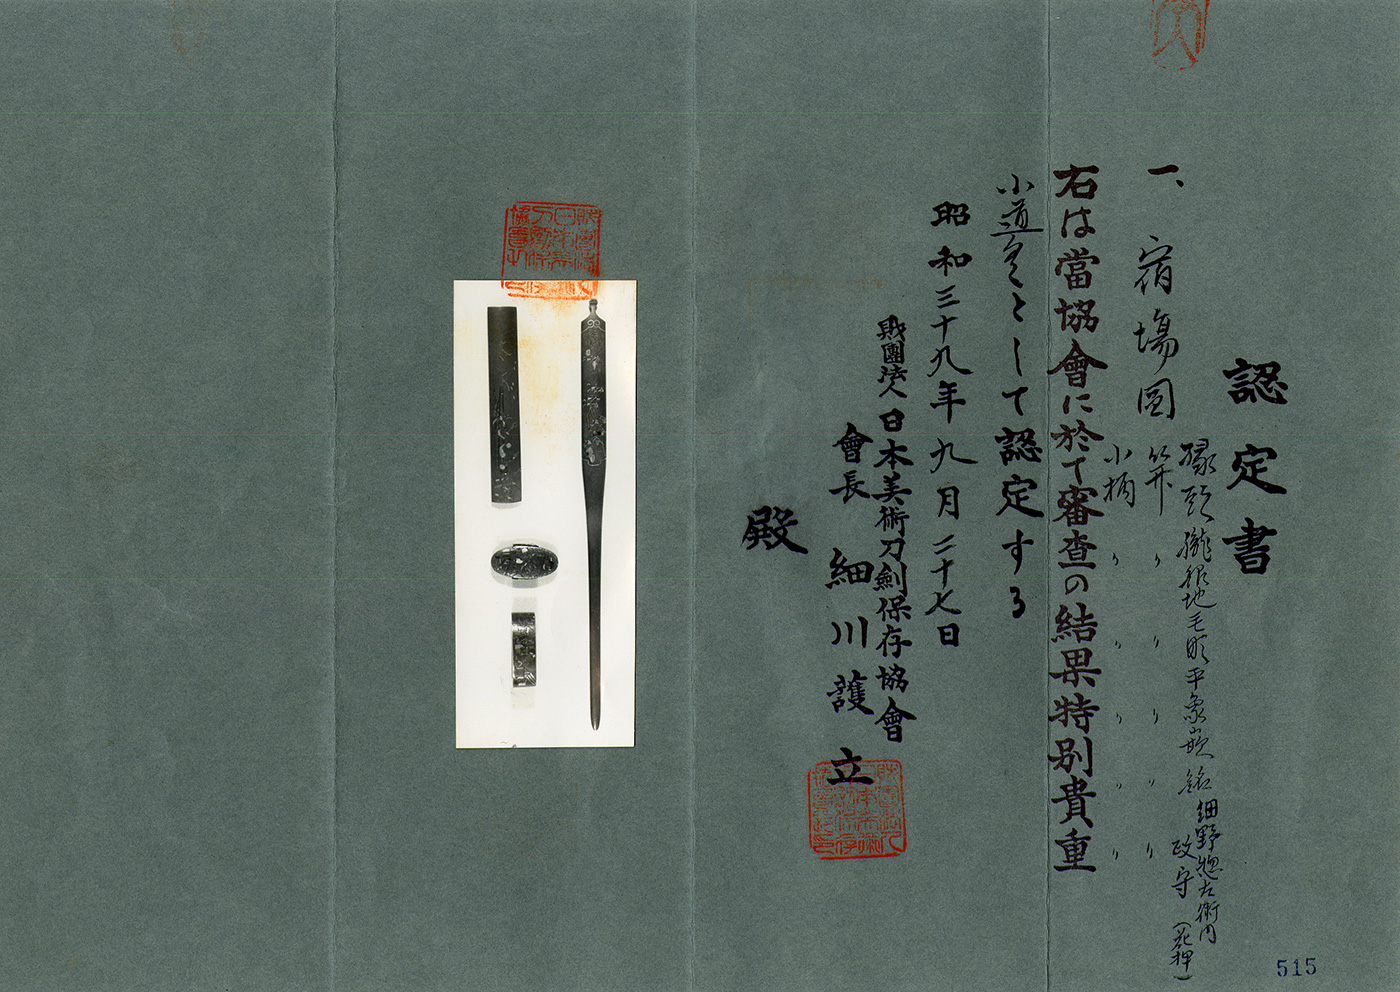 認定書
一、宿場圖
縁頭 朧銀地毛彫平象嵌 銘 細野惣左衛門
政守(花押)
笄 〃 〃 〃 〃 〃
小柄 〃 〃 〃 〃 〃
右は當協會に於て審査の結果特別貴重
小道具として認定する
昭和三十九年九月二十七日
財團法人日本美術刀劍保存協會
會長 細川護立
殿
515